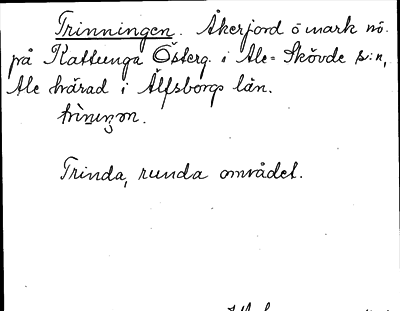 Trinningen. Åkerjord o mark nö.
på Kattunga Österg. i Ale-Skövde s:n,
Ale härad i Älfsborgs län.
Trinda, runda området.